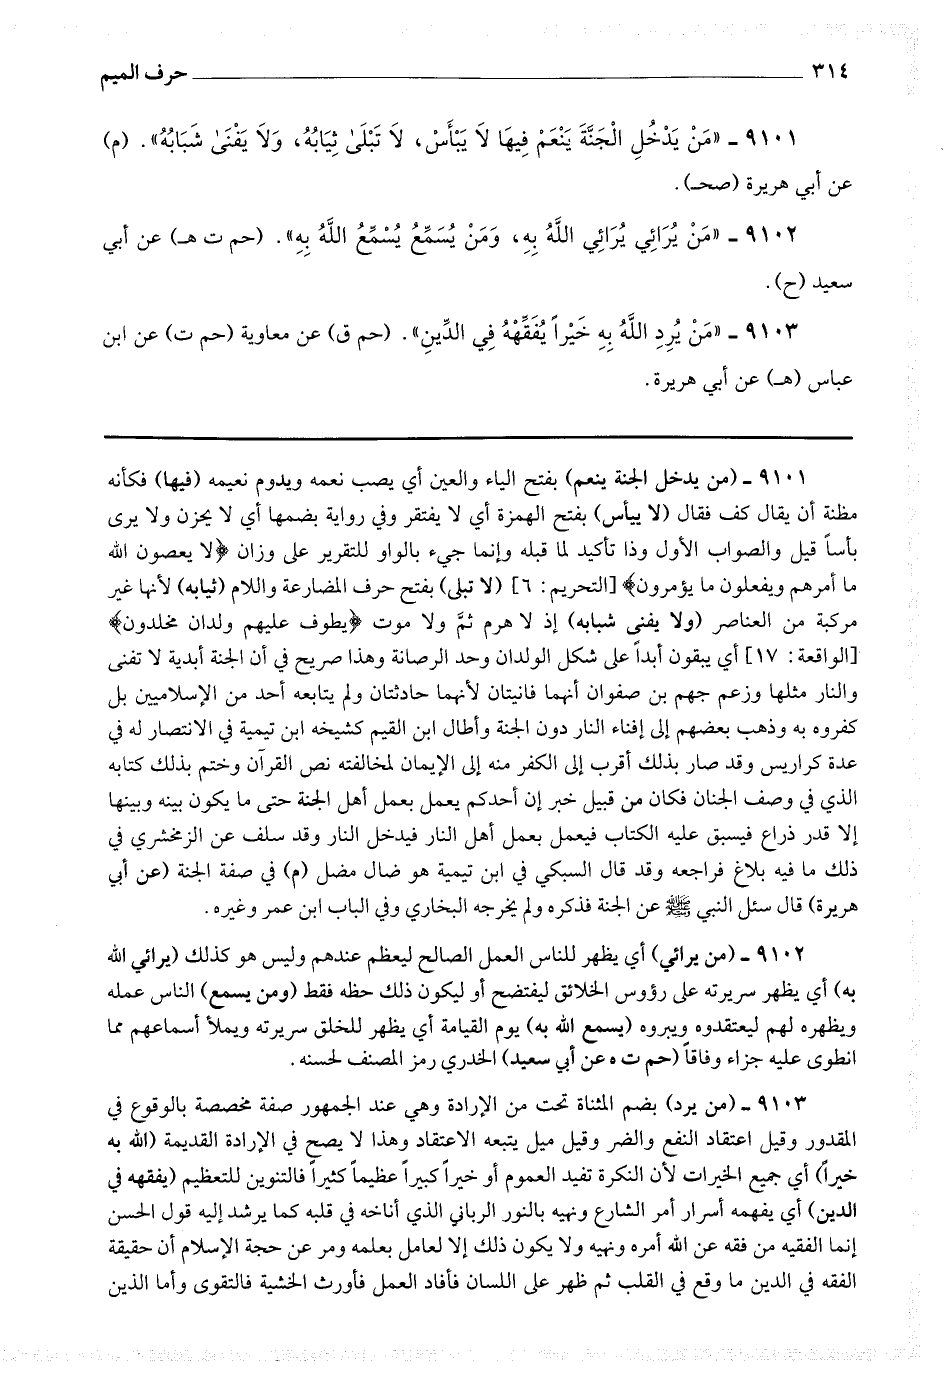 ٣١٤ حرف الميم
٩١٠١ ـ «مَنْ يَدْخُلِ الْجَنَّةَ يَنْعَمْ فِيهَا لَا يَبْأَسْ، لَا تَبْلَىٰ ثِيَابُهُ، وَلَا يَفْنَىٰ شَبَابُهُ». (م)
عن أبي هريرة (صحـ).
٩١٠٢ ـ «مَنْ يُرَائِي يُرَائِي اللَّهُ بِهِ، وَمَنْ يُسَمِّعُ يُسْمِّعُ اللَّهُ بِهِ». (حم ت هـ) عن أبي
سعيد (ح).
٩١٠٣ ـ «مَنْ يُرِدِ اللَّهُ بِهِ خَيْراً يُفَقِّهْهُ فِي الدِّينِ». (حم ق) عن معاوية (حم ت) عن ابن
عباس (هـ) عن أبي هريرة.
٩١٠١ ـ (من يدخل الجنة ينعم) بفتح الياء والعين أي يصب نعمه ويدوم نعيمه (فيها) فكأنه
مظنة أن يقال كف فقال (لا ييأس) بفتح الهمزة أي لا يفتقر وفي رواية بضمها أي لا يحزن ولا يرى
بأساً قيل والصواب الأول وذا تأكيد لما قبله وإنما جيء بالواو للتقرير على وزان ﴿لا يعصون الله
ما أمرهم ويفعلون ما يؤمرون﴾ [التحريم: ٦] (لا تبلى) بفتح حرف المضارعة واللام (ثيابه) لأنها غير
مركبة من العناصر (ولا يفنى شبابه) إذ لا هرم ثمَّ ولا موت ﴿يطوف عليهم ولدان مخلدون﴾
[الواقعة: ١٧] أي يبقون أبداً على شكل الولدان وحد الرصانة وهذا صريح في أن الجنة أبدية لا تفنى
والنار مثلها وزعم جهم بن صفوان أنهما فانيتان لأنهما حادثتان ولم يتابعه أحد من الإسلاميين بل
كفروه به وذهب بعضهم إلى إفناء النار دون الجنة وأطال ابن القيم كشيخه ابن تيمية في الانتصار له في
عدة كراريس وقد صار بذلك أقرب إلى الكفر منه إلى الإيمان لمخالفته نص القرآن وختم بذلك كتابه
الذي في وصف الجنان فكان من قبيل خبر إن أحدكم يعمل بعمل أهل الجنة حتى ما يكون بينه وبينها
إلا قدر ذراع فيسبق عليه الكتاب فيعمل بعمل أهل النار فيدخل النار وقد سلف عن الزمخشري في
ذلك ما فيه بلاغ فراجعه وقد قال السبكي في ابن تيمية هو ضال مضل (م) في صفة الجنة (عن أبي
هريرة) قال سئل النبي ﷺ عن الجنة فذكره ولم يخرجه البخاري وفي الباب ابن عمر وغيره.
٩١٠٢ ـ (من يرائي) أي يظهر للناس العمل الصالح ليعظم عندهم وليس هو كذلك (يرائي الله
به) أي يظهر سريرته على رؤوس الخلائق ليفتضح أو ليكون ذلك حظه فقط (ومن يسمع) الناس عمله
ويظهره لهم ليعتقدوه ويبروه (يسمع الله به) يوم القيامة أي يظهر للخلق سريرته ويملأ أسماعهم مما
انطوى عليه جزاء وفاقاً (حم ت ه عن أبي سعيد) الخدري رمز المصنف لحسنه.
٩١٠٣ ـ (من يرد) بضم المثناة تحت من الإرادة وهي عند الجمهور صفة مخصصة بالوقوع في
المقدور وقيل اعتقاد النفع والضر وقيل ميل يتبعه الاعتقاد وهذا لا يصح في الإرادة القديمة (الله به
خيراً) أي جميع الخيرات لأن النكرة تفيد العموم أو خيراً كبيراً عظيماً كثيراً فالتنوين للتعظيم (يفقهه في
الدين) أي يفهمه أسرار أمر الشارع ونهيه بالنور الرباني الذي أناخه في قلبه كما يرشد إليه قول الحسن
إنما الفقيه من فقه عن الله أمره ونهيه ولا يكون ذلك إلا لعامل بعلمه ومر عن حجة الإسلام أن حقيقة
الفقه في الدين ما وقع في القلب ثم ظهر على اللسان فأفاد العمل فأورث الخشية فالتقوى وأما الذين